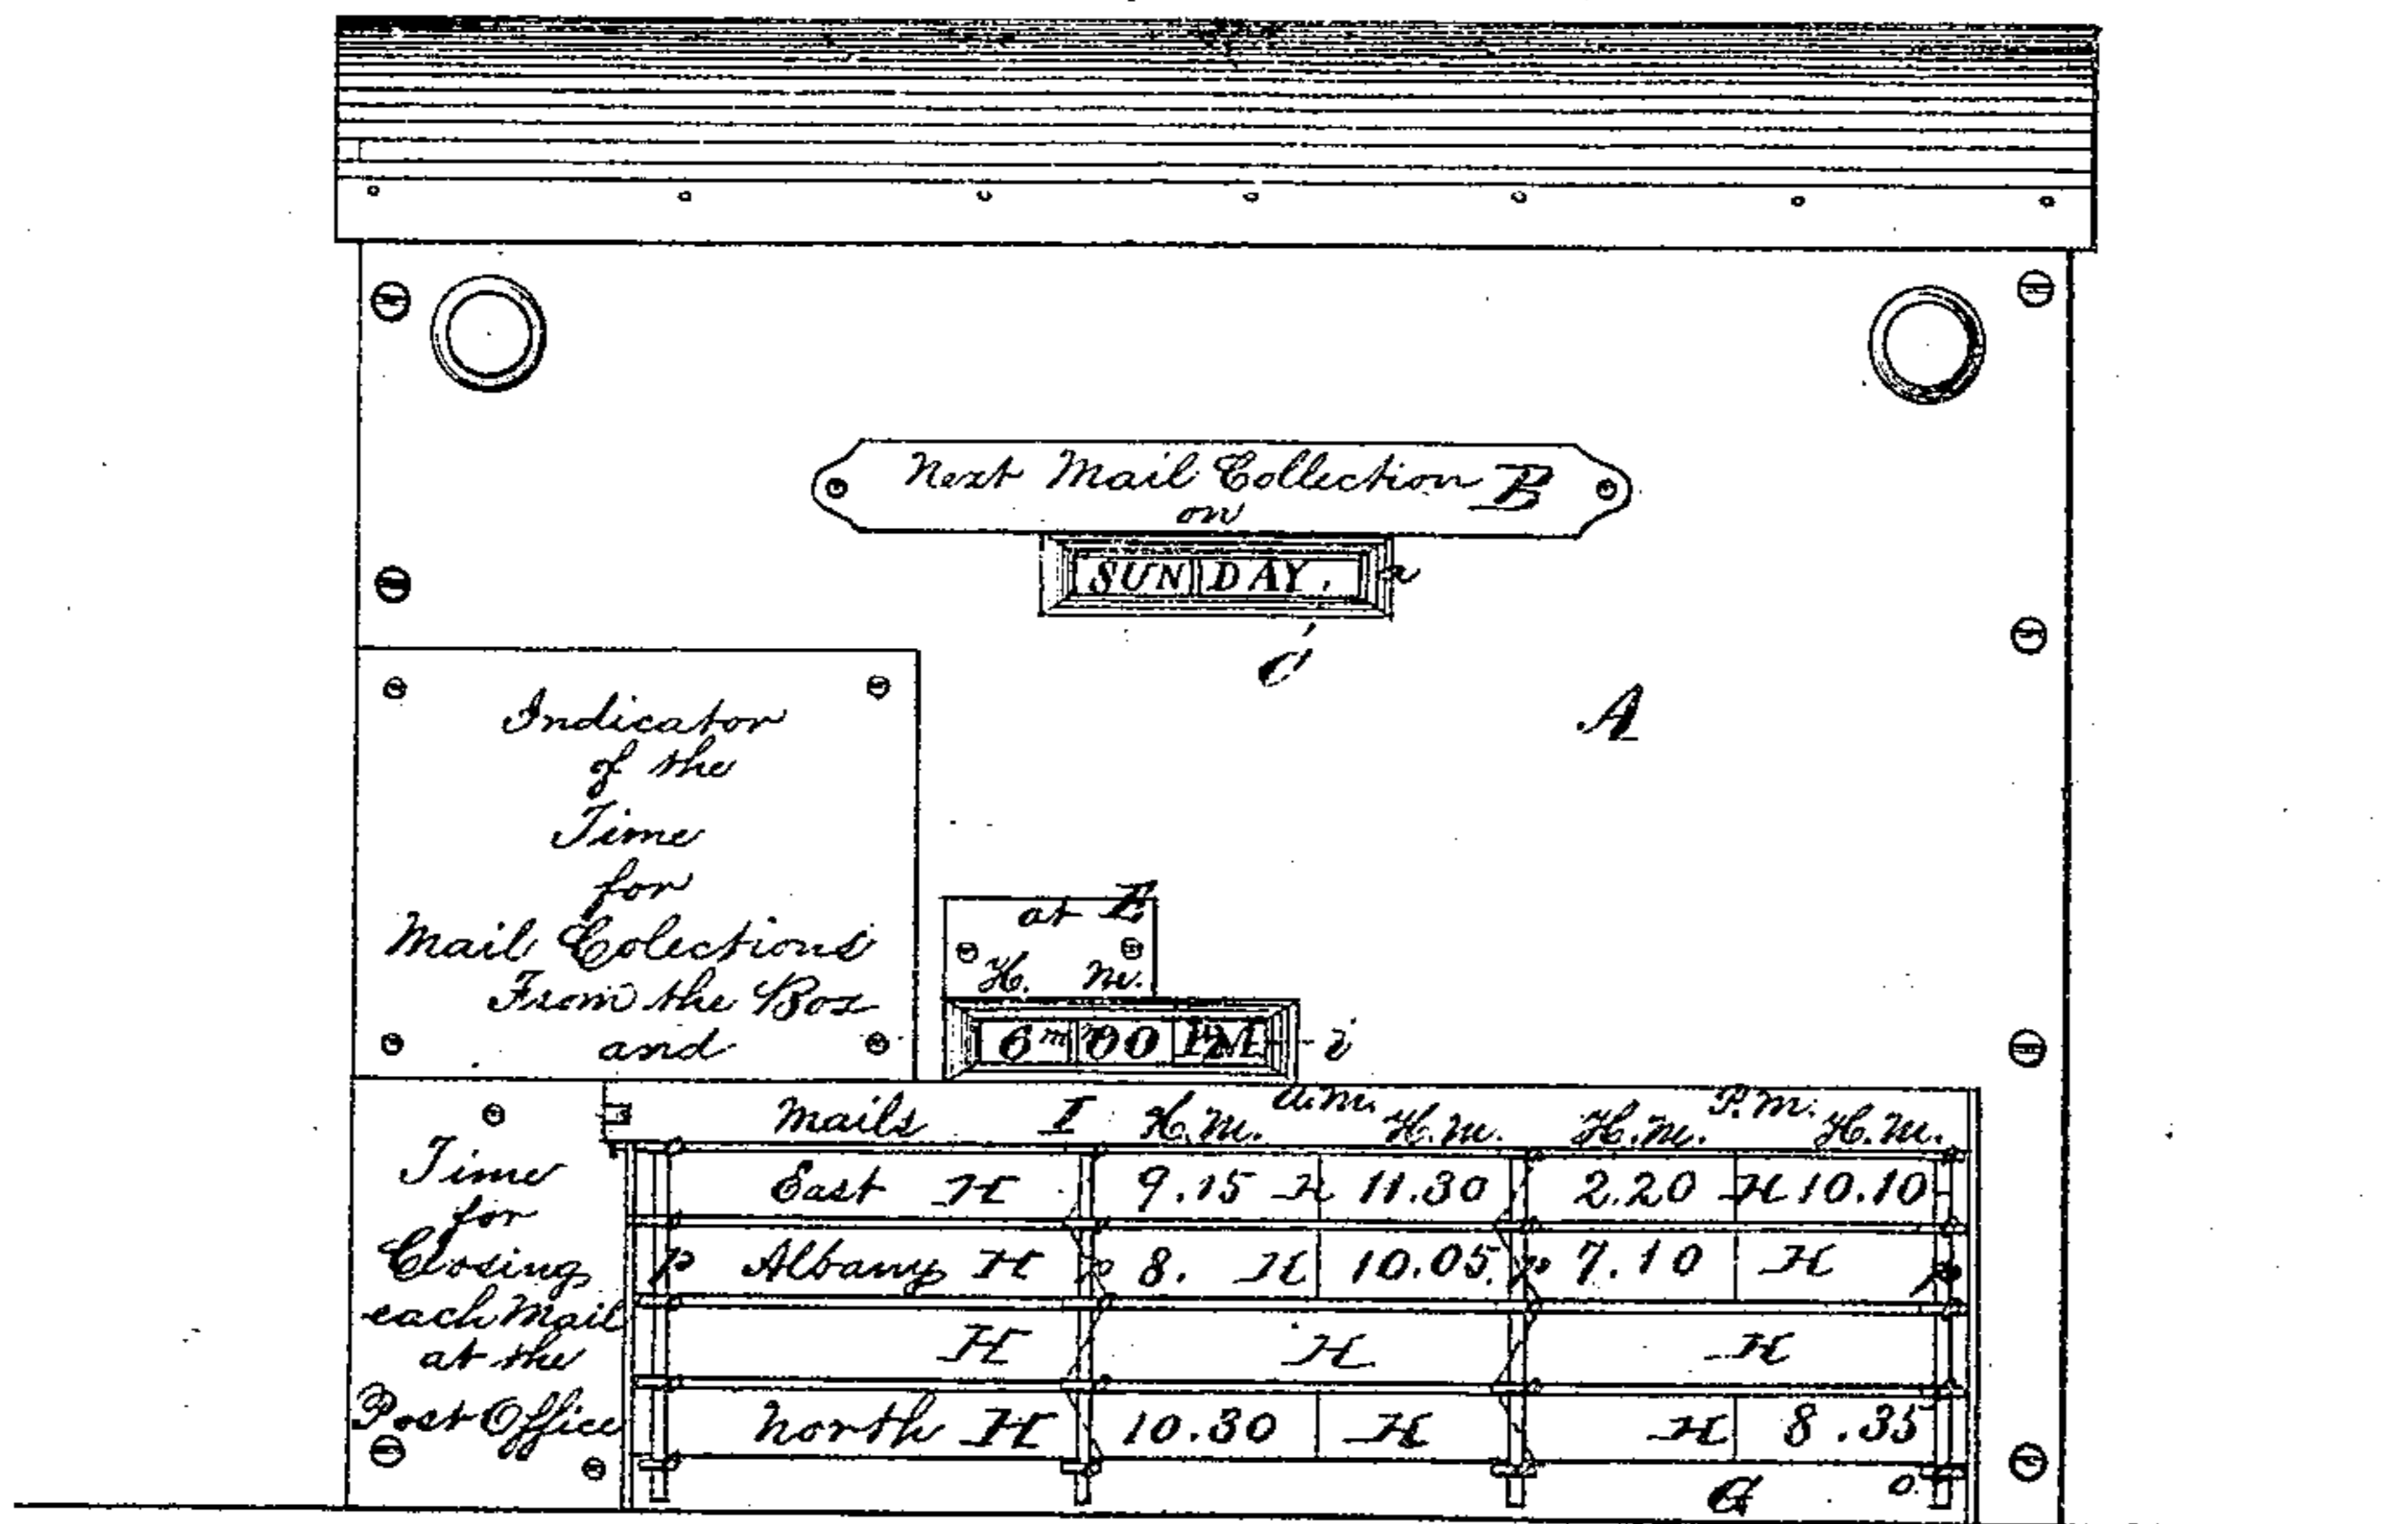 Next Mail Collection B
on
SUNDAY. a
C'
A
Indicator
of the
Time
for
Mail Colections
From the Box
and
at E
H. M.
6 00 PM i
Time
for
Closing
each Mail
at the
Post Office
A.M. P.M.
Mails I H.M. H.M. H.M. H.M.
East H 9.15 H 11.30 2.20 H 10.10
p Albany H p 8. H 10.05 p 7.10 H p
H H H
North H 10.30 H H 8.35
G o